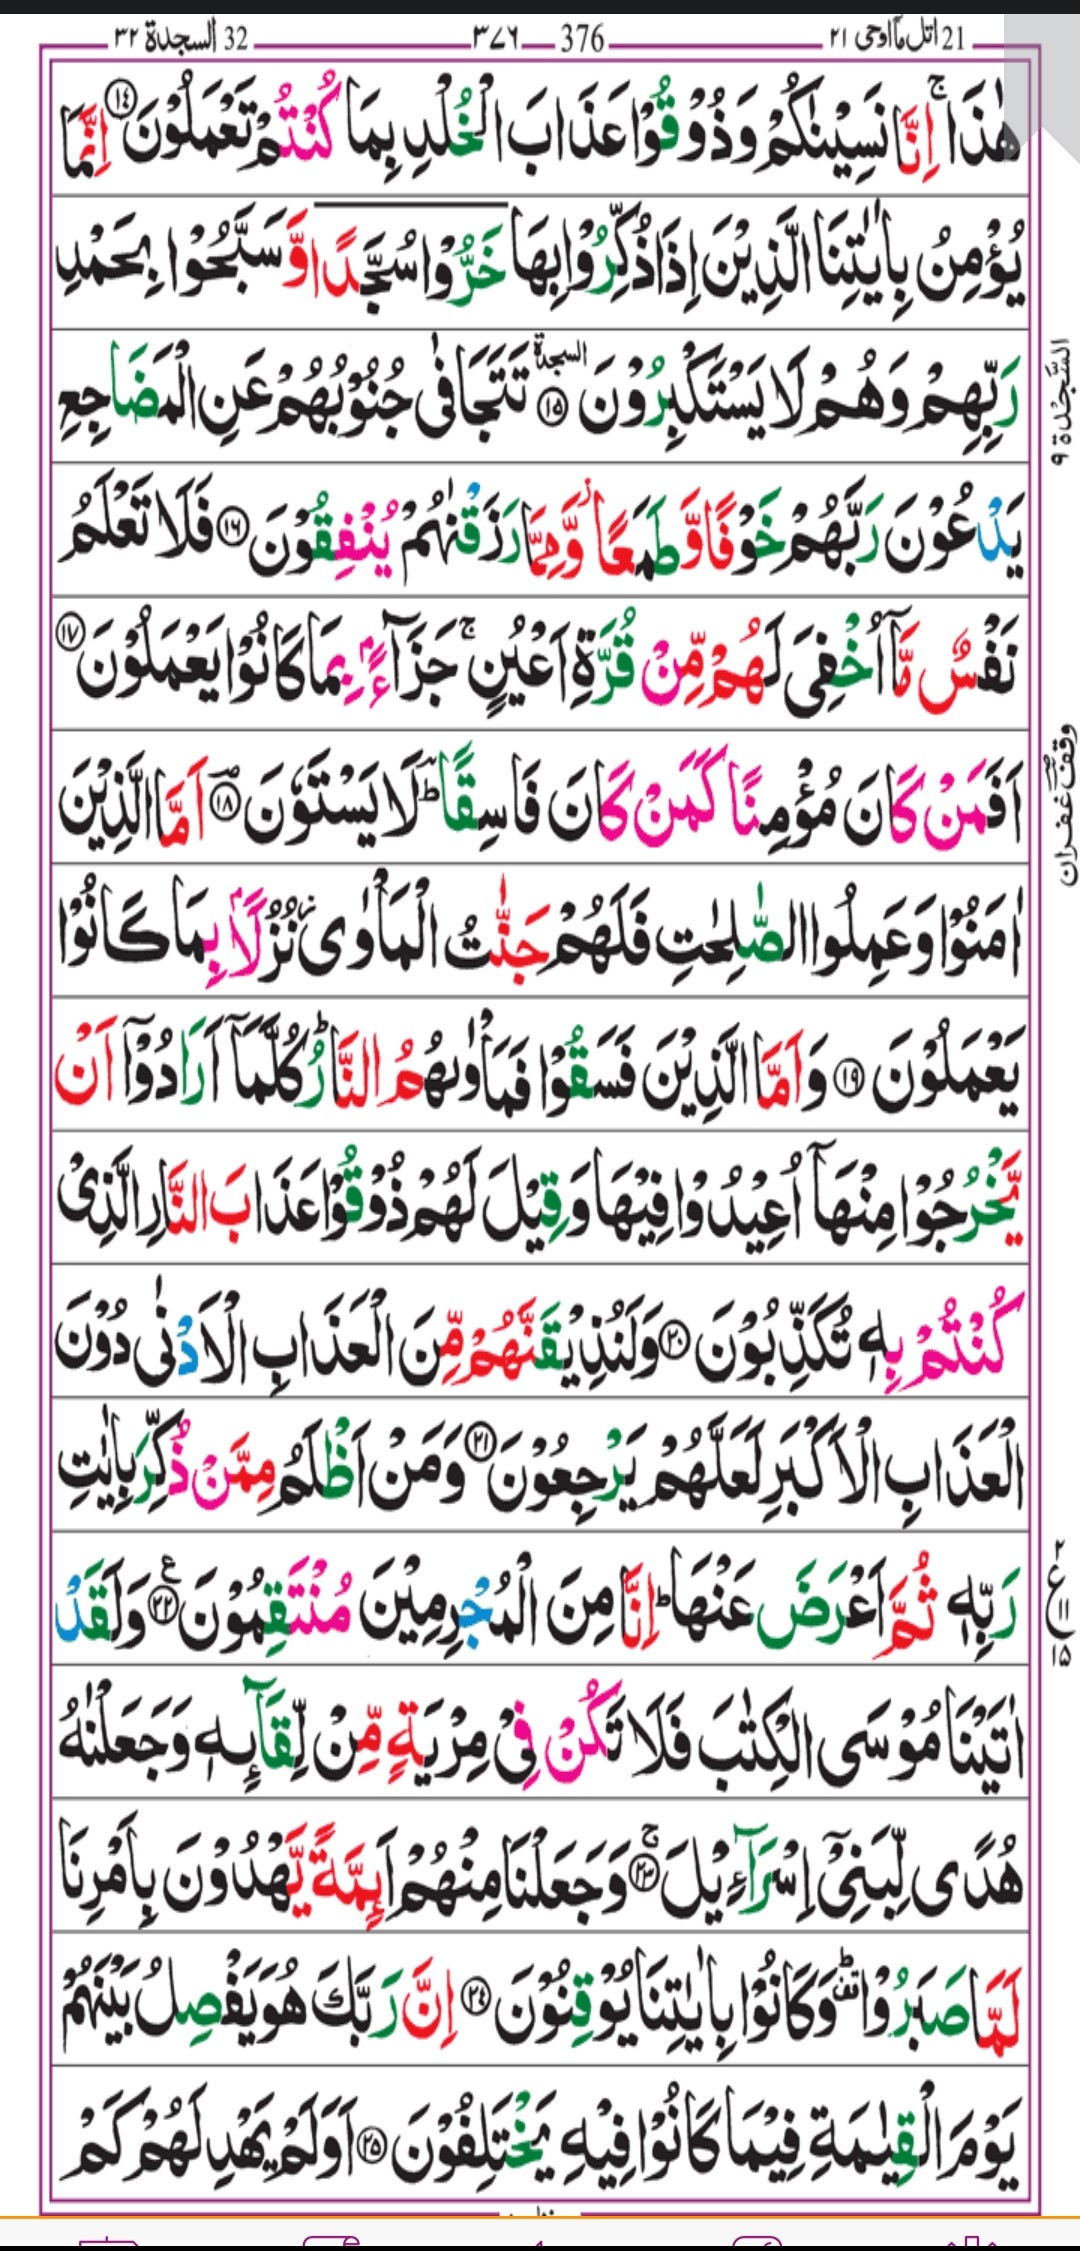 21 اتل مآ اوحی ۲۱ 376 ۳۷۶ 32 السجدة ۳۲
هٰذَا ۚ اِنَّا نَسِيْنٰكُمْ وَذُوْقُوْا عَذَابَ الْخُلْدِ بِمَا كُنْتُمْ تَعْمَلُوْنَ ﴿۱۴﴾ اِنَّمَا
يُؤْمِنُ بِاٰيٰتِنَا الَّذِيْنَ اِذَا ذُكِّرُوْا بِهَا خَرُّوْا سُجَّدًا وَّ سَبَّحُوْا بِحَمْدِ
رَبِّهِمْ وَهُمْ لَا يَسْتَكْبِرُوْنَ ﴿۱۵﴾ السجدة تَتَجَافٰى جُنُوْبُهُمْ عَنِ الْمَضَاجِعِ
السَّجْدَة ۹
يَدْعُوْنَ رَبَّهُمْ خَوْفًا وَّطَمَعًا ۫ وَّمِمَّا رَزَقْنٰهُمْ يُنْفِقُوْنَ ﴿۱۶﴾ فَلَا تَعْلَمُ
نَفْسٌ مَّاۤ اُخْفِيَ لَهُمْ مِّنْ قُرَّةِ اَعْيُنٍ ۚ جَزَآءًۢ بِمَا كَانُوْا يَعْمَلُوْنَ ﴿۱۷﴾
اَفَمَنْ كَانَ مُؤْمِنًا كَمَنْ كَانَ فَاسِقًا ؕ لَا يَسْتَوٗنَ ﴿۱۸﴾ اَمَّا الَّذِيْنَ
وقف غفران
اٰمَنُوْا وَعَمِلُوا الصّٰلِحٰتِ فَلَهُمْ جَنّٰتُ الْمَاْوٰى ؗ نُزُلًۢا بِمَا كَانُوْا
يَعْمَلُوْنَ ﴿۱۹﴾ وَاَمَّا الَّذِيْنَ فَسَقُوْا فَمَاْوٰىهُمُ النَّارُ ؕ كُلَّمَاۤ اَرَادُوْۤا اَنْ
يَّخْرُجُوْا مِنْهَاۤ اُعِيْدُوْا فِيْهَا وَقِيْلَ لَهُمْ ذُوْقُوْا عَذَابَ النَّارِ الَّذِيْ
كُنْتُمْ بِهٖ تُكَذِّبُوْنَ ﴿۲۰﴾ وَلَنُذِيْقَنَّهُمْ مِّنَ الْعَذَابِ الْاَدْنٰى دُوْنَ
الْعَذَابِ الْاَكْبَرِ لَعَلَّهُمْ يَرْجِعُوْنَ ﴿۲۱﴾ وَمَنْ اَظْلَمُ مِمَّنْ ذُكِّرَ بِاٰيٰتِ
رَبِّهٖ ثُمَّ اَعْرَضَ عَنْهَا ؕ اِنَّا مِنَ الْمُجْرِمِيْنَ مُنْتَقِمُوْنَ ﴿۲۲﴾ ع وَلَقَدْ
۲ ع ۱۱ ۱۵
اٰتَيْنَا مُوْسَى الْكِتٰبَ فَلَا تَكُنْ فِيْ مِرْيَةٍ مِّنْ لِّقَآئِهٖ وَجَعَلْنٰهُ
هُدًى لِّبَنِيْۤ اِسْرَآءِيْلَ ﴿۲۳﴾ ۚ وَجَعَلْنَا مِنْهُمْ اَئِمَّةً يَّهْدُوْنَ بِاَمْرِنَا
لَمَّا صَبَرُوْا ؕ۫ وَكَانُوْا بِاٰيٰتِنَا يُوْقِنُوْنَ ﴿۲۴﴾ اِنَّ رَبَّكَ هُوَ يَفْصِلُ بَيْنَهُمْ
يَوْمَ الْقِيٰمَةِ فِيْمَا كَانُوْا فِيْهِ يَخْتَلِفُوْنَ ﴿۲۵﴾ اَوَلَمْ يَهْدِ لَهُمْ كَمْ